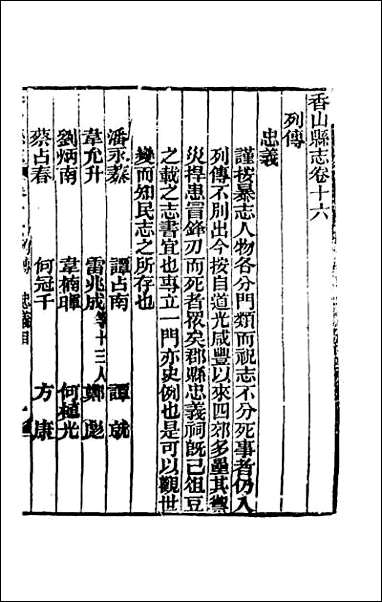 香山縣志卷十六
列傳
忠義
謹按暴志人物各分門類而祝志不分死事者仍入
列傳不别出今按自道光咸豐以來四郊多壘其禦
災捍患冒鋒刃而死者眾矣郡縣忠義祠既已俎豆
之載之志書宜也專立一門亦史例也是可以觀世
變而知民志之所存也
潘永 譚占南 譚就
韋允升 雷兆成等十三人 鄭彪
劉炳南 韋楠暉 何植光
蔡占春 何冠千 方康
忠義目